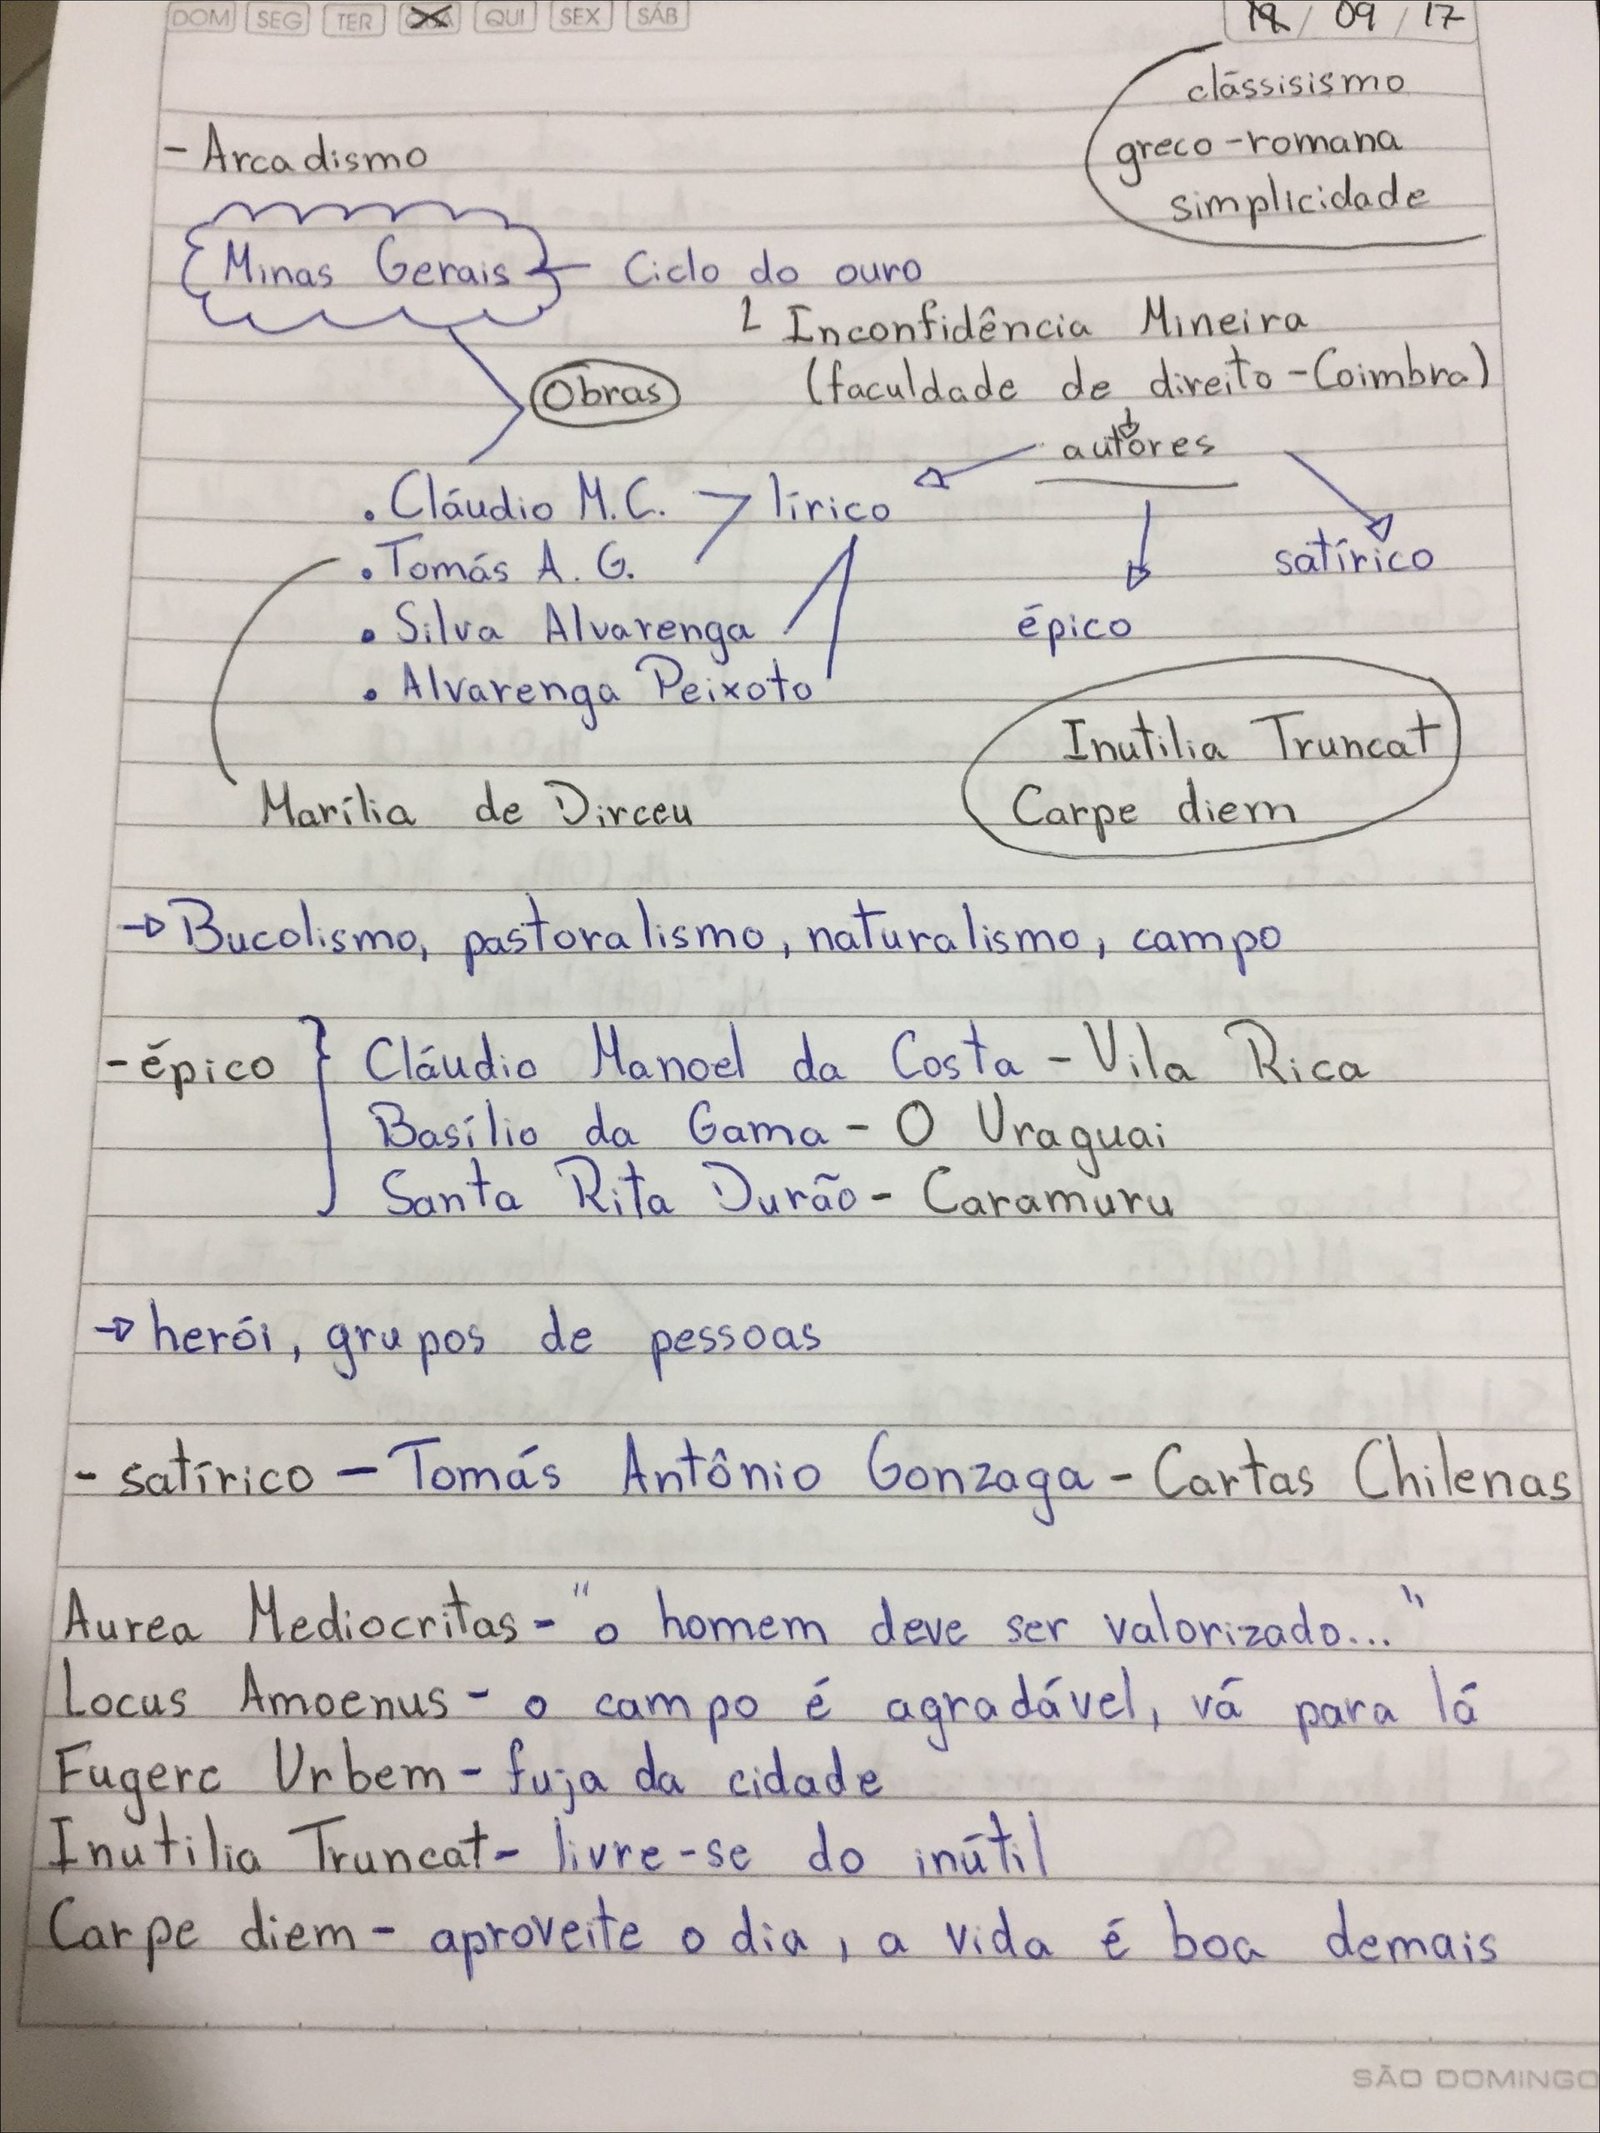 DOM SEG TER QUA QUI SEX SÁB
/ 09 / 17
clássisismo
greco-romana
simplicidade
- Arcadismo
Minas Gerais - Ciclo do ouro
Inconfidência Mineira
Obras
(faculdade de direito - Coimbra)
autores
. Cláudio M.C. lírico
. Tomás A. G.
satírico
. Silva Alvarenga
épico
. Alvarenga Peixoto
Inutilia Truncat
Marília de Dirceu
Carpe diem
→ Bucolismo, pastoralismo, naturalismo, campo
- épico } Cláudio Manoel da Costa - Vila Rica
Basílio da Gama - O Uraguai
Santa Rita Durão - Caramuru
→ herói, grupos de pessoas
- satírico - Tomás Antônio Gonzaga - Cartas Chilenas
Aurea Mediocritas - "o homem deve ser valorizado..."
Locus Amoenus - o campo é agradável, vá para lá
Fugere Urbem - fuja da cidade
Inutilia Truncat - livre-se do inútil
Carpe diem - aproveite o dia, a vida é boa demais
SÃO DOMINGO